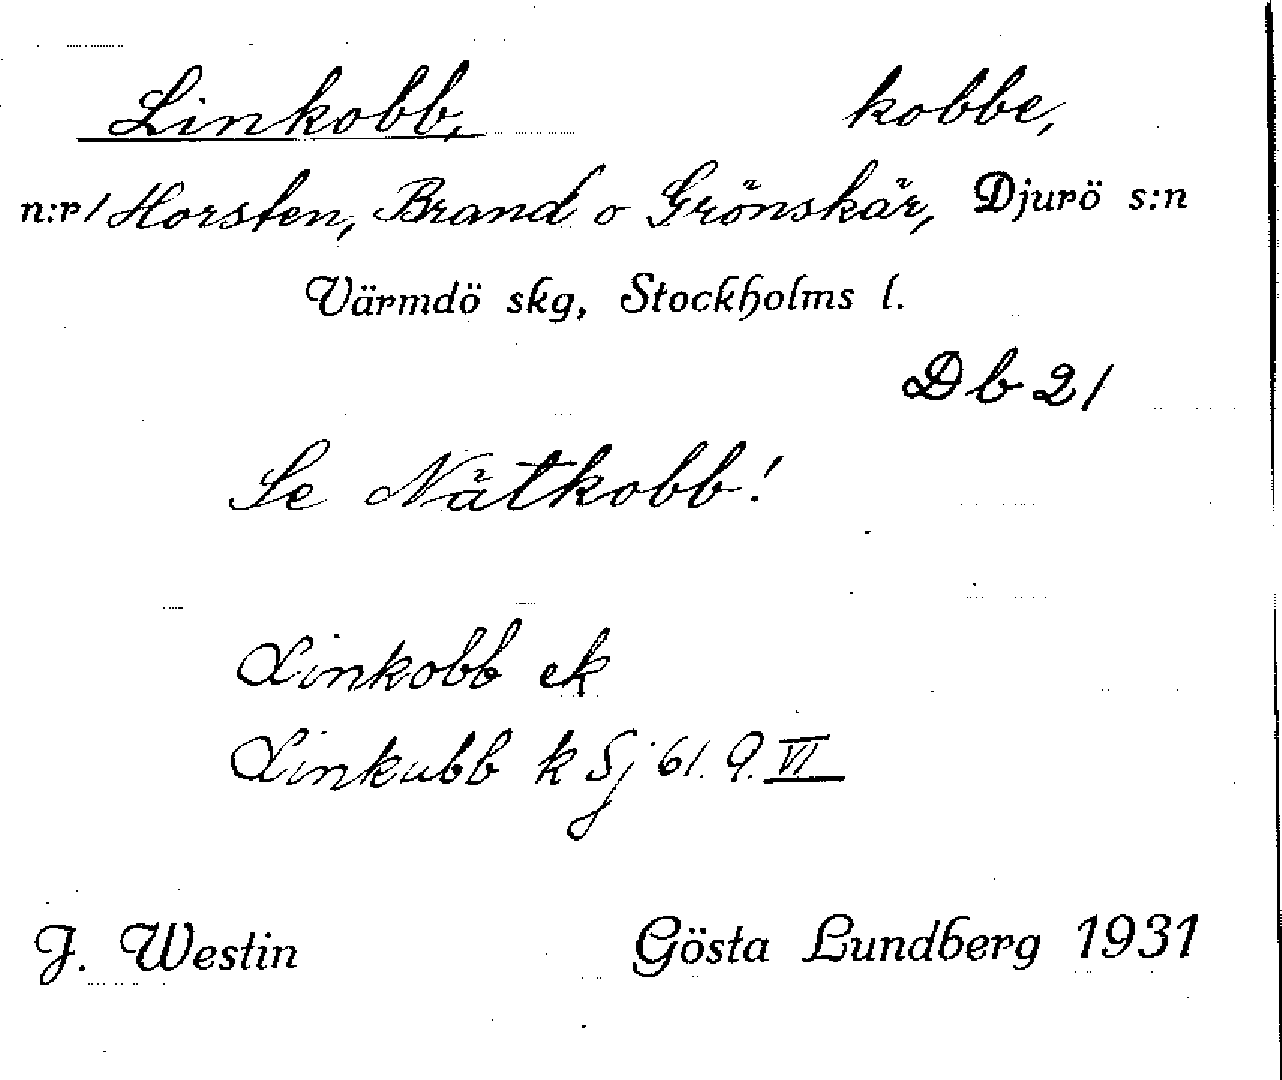 Linkobb, kobbe,
n:r 1 Horsten, Brand o Grönskär, Djurö s:n
Värmdö skg, Stockholms l.
Db 21
Se Nätkobb!
Linkobb ek
Linkubb k Sj 61. 9. VI
J. Westin Gösta Lundberg 1931